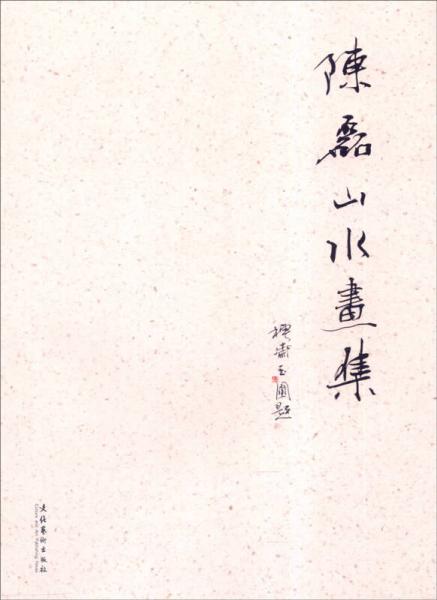 陳磊山水畫集
玉圃題
文化藝術出版社
Culture and Art Publishing House